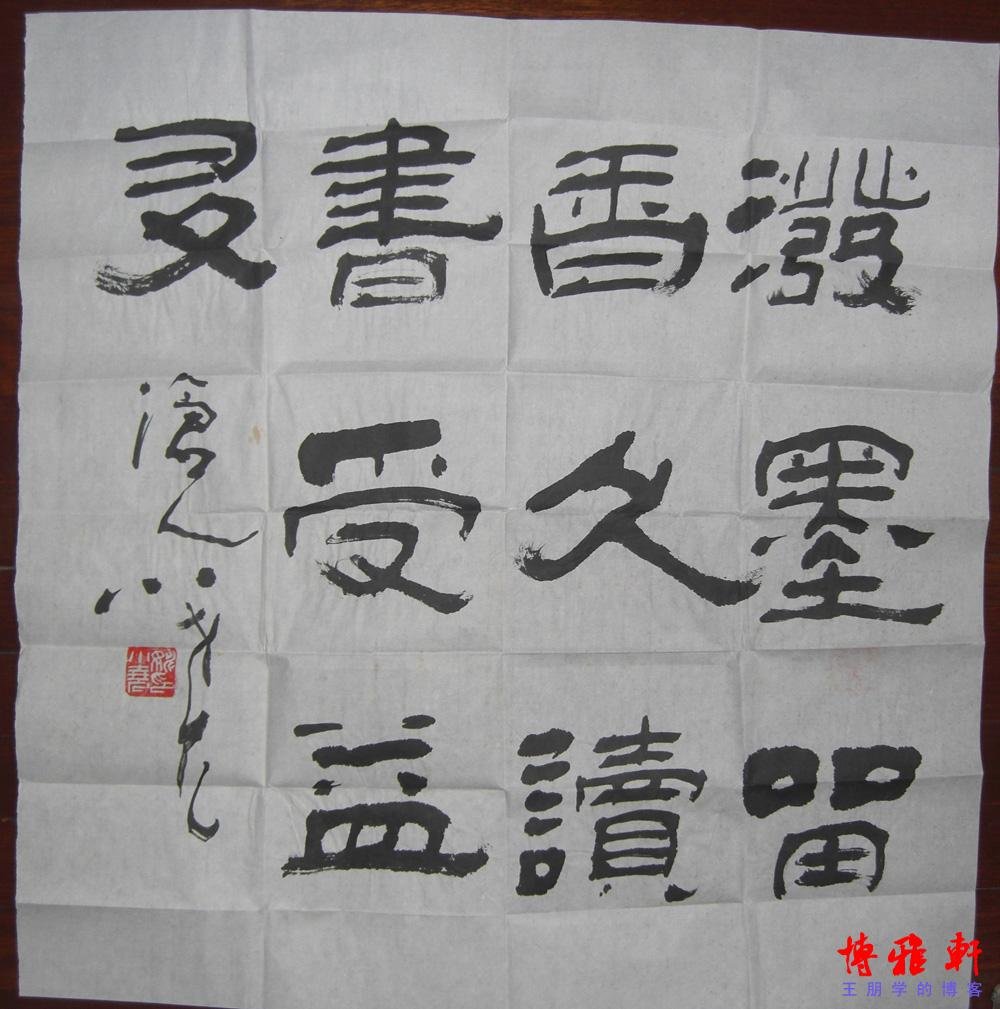 潑墨留
香久讀
書受益
叟
滄人
博雅軒
王朋学的博客